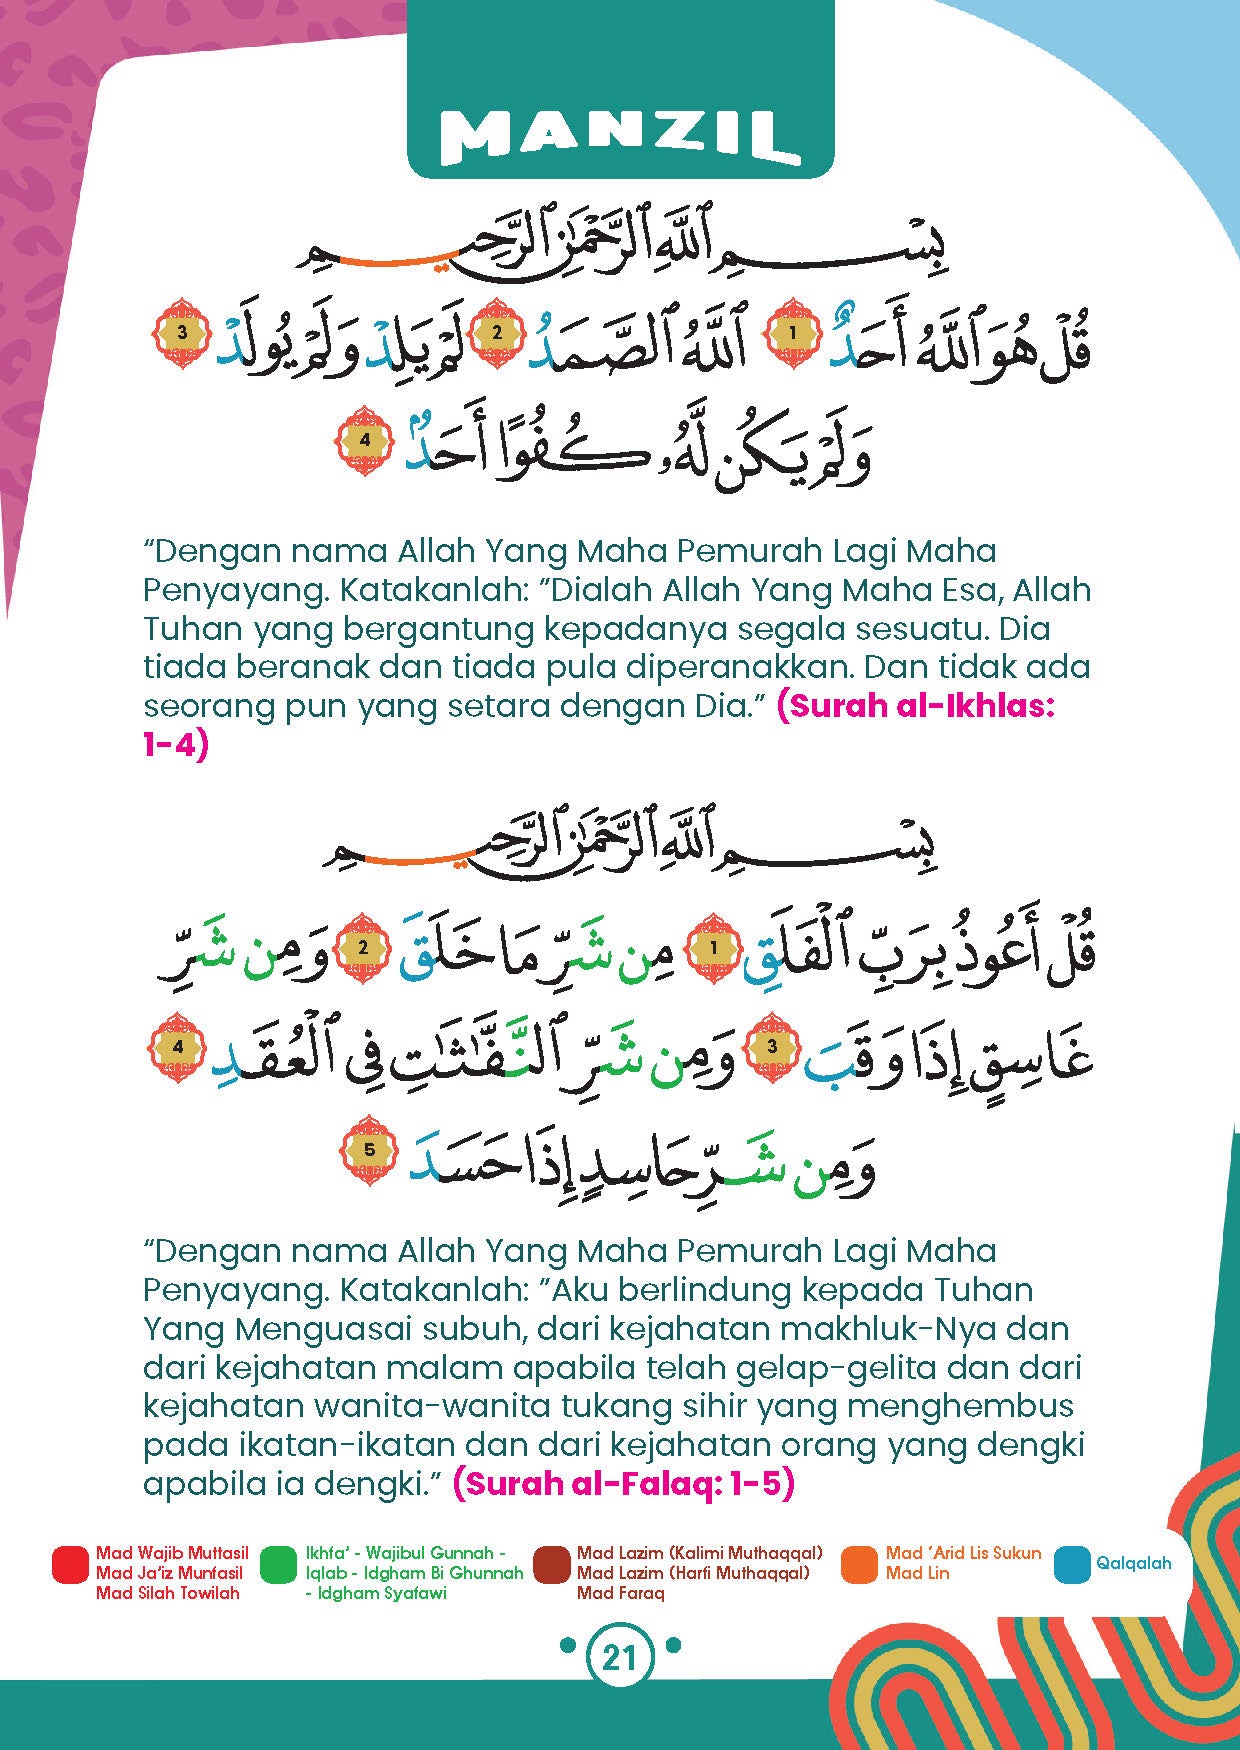 MANZIL
بِسْمِ ٱللَّهِ ٱلرَّحْمَٰنِ ٱلرَّحِيمِ
قُلْ هُوَ ٱللَّهُ أَحَدٌ 1 ٱللَّهُ ٱلصَّمَدُ 2 لَمْ يَلِدْ وَلَمْ يُولَدْ 3
وَلَمْ يَكُن لَّهُۥ كُفُوًا أَحَدٌۢ 4
“Dengan nama Allah Yang Maha Pemurah Lagi Maha
Penyayang. Katakanlah: ”Dialah Allah Yang Maha Esa, Allah
Tuhan yang bergantung kepadanya segala sesuatu. Dia
tiada beranak dan tiada pula diperanakkan. Dan tidak ada
seorang pun yang setara dengan Dia.” (Surah al-Ikhlas:
1-4)
بِسْمِ ٱللَّهِ ٱلرَّحْمَٰنِ ٱلرَّحِيمِ
قُلْ أَعُوذُ بِرَبِّ ٱلْفَلَقِ 1 مِن شَرِّ مَا خَلَقَ 2 وَمِن شَرِّ
غَاسِقٍ إِذَا وَقَبَ 3 وَمِن شَرِّ ٱلنَّفَّٰثَٰتِ فِى ٱلْعُقَدِ 4
وَمِن شَرِّ حَاسِدٍ إِذَا حَسَدَ 5
“Dengan nama Allah Yang Maha Pemurah Lagi Maha
Penyayang. Katakanlah: ”Aku berlindung kepada Tuhan
Yang Menguasai subuh, dari kejahatan makhluk-Nya dan
dari kejahatan malam apabila telah gelap-gelita dan dari
kejahatan wanita-wanita tukang sihir yang menghembus
pada ikatan-ikatan dan dari kejahatan orang yang dengki
apabila ia dengki.” (Surah al-Falaq: 1-5)
Mad Wajib Muttasil
Mad Ja’iz Munfasil
Mad Silah Towilah
Ikhfa’ - Wajibul Gunnah -
Iqlab - Idgham Bi Ghunnah
- Idgham Syafawi
Mad Lazim (Kalimi Muthaqqal)
Mad Lazim (Harfi Muthaqqal)
Mad Faraq
Mad ’Arid Lis Sukun
Mad Lin
Qalqalah
21